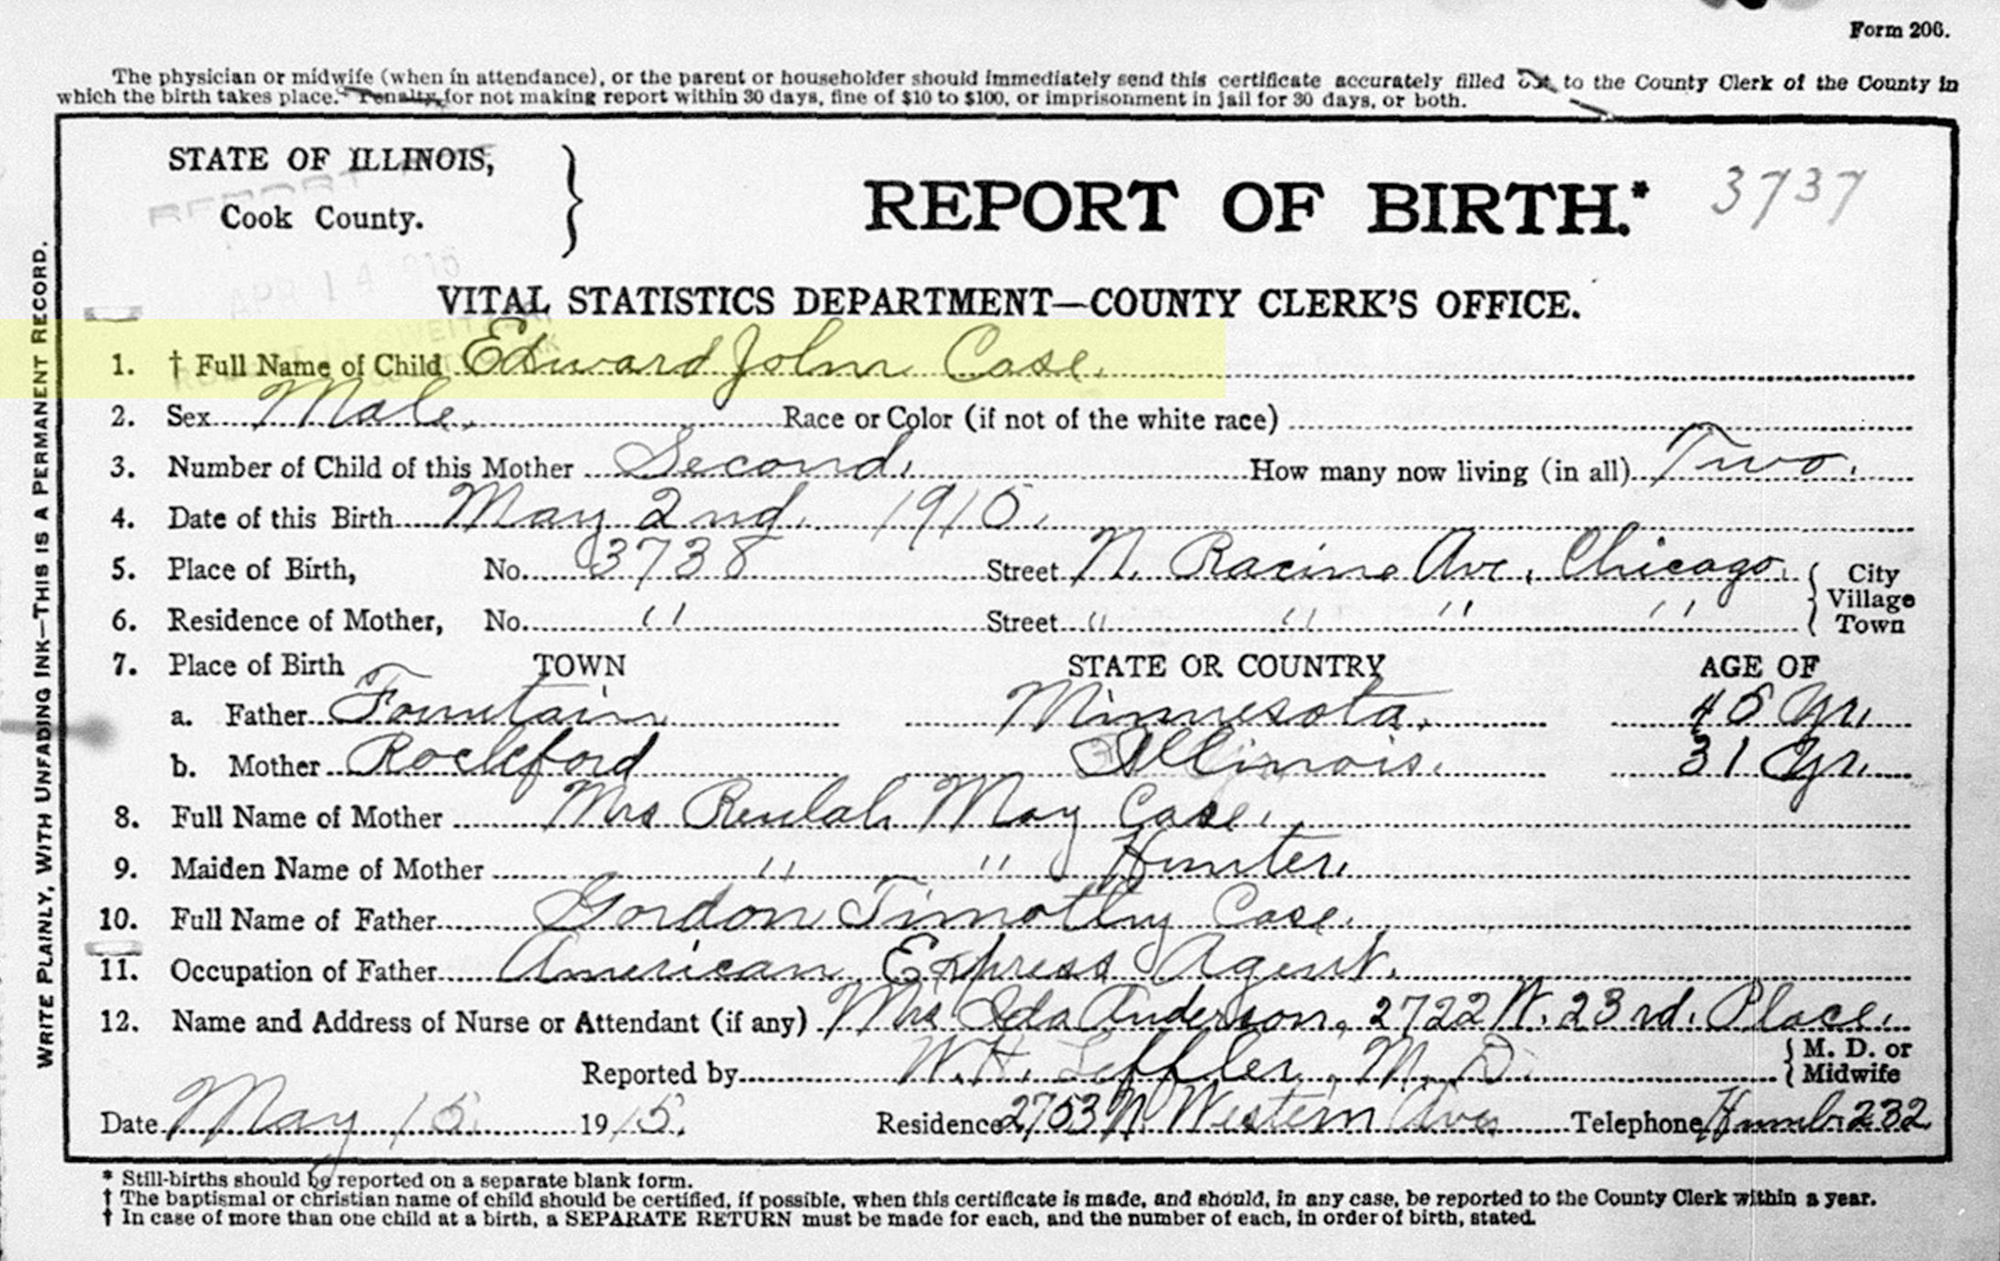 Form 206.
The physician or midwife (when in attendance), or the parent or householder should immediately send this certificate accurately filled out to the County Clerk of the County in
which the birth takes place. Penalty for not making report within 30 days, fine of $10 to $100, or imprisonment in jail for 30 days, or both.
STATE OF ILLINOIS,
Cook County.
REPORT OF BIRTH.* 3737
VITAL STATISTICS DEPARTMENT—COUNTY CLERK'S OFFICE.
1. † Full Name of Child Edward John Case.
2. Sex Male. Race or Color (if not of the white race)
3. Number of Child of this Mother Second. How many now living (in all) Two.
4. Date of this Birth May 2nd. 1915.
5. Place of Birth, No. 3738 Street N. Racine Ave. Chicago. City
Village
6. Residence of Mother, No. " Street " " " " Town
7. Place of Birth TOWN STATE OR COUNTRY AGE OF
a. Father Fountain Minnesota. 45 Yr.
b. Mother Rockford Illinois. 31 Yr.
8. Full Name of Mother Mrs Beulah May Case.
9. Maiden Name of Mother " " Hunter.
10. Full Name of Father Gordon Timothy Case.
11. Occupation of Father American Express Agent.
12. Name and Address of Nurse or Attendant (if any) Mrs Ida Anderson, 2722 W. 23rd. Place.
Reported by W. H. Leffler, M. D. M. D. or
Midwife
Date May 15. 1915. Residence 2753 N. Western Ave Telephone Humb. 232
* Still-births should be reported on a separate blank form.
† The baptismal or christian name of child should be certified, if possible, when this certificate is made, and should, in any case, be reported to the County Clerk within a year.
† In case of more than one child at a birth, a SEPARATE RETURN must be made for each, and the number of each, in order of birth, stated.
WRITE PLAINLY, WITH UNFADING INK—THIS IS A PERMANENT RECORD.